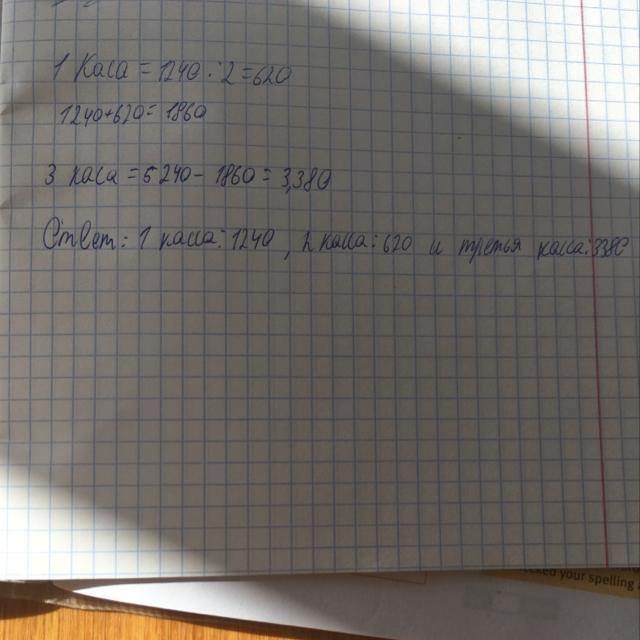 1 Каса = 1240 : 2 = 620
1240+620= 1860
3 каса = 5240 - 1860 = 3,380
Ответ: 1 каса: 1240, 2 каса: 620 и третья каса: 3380
cked your spelling